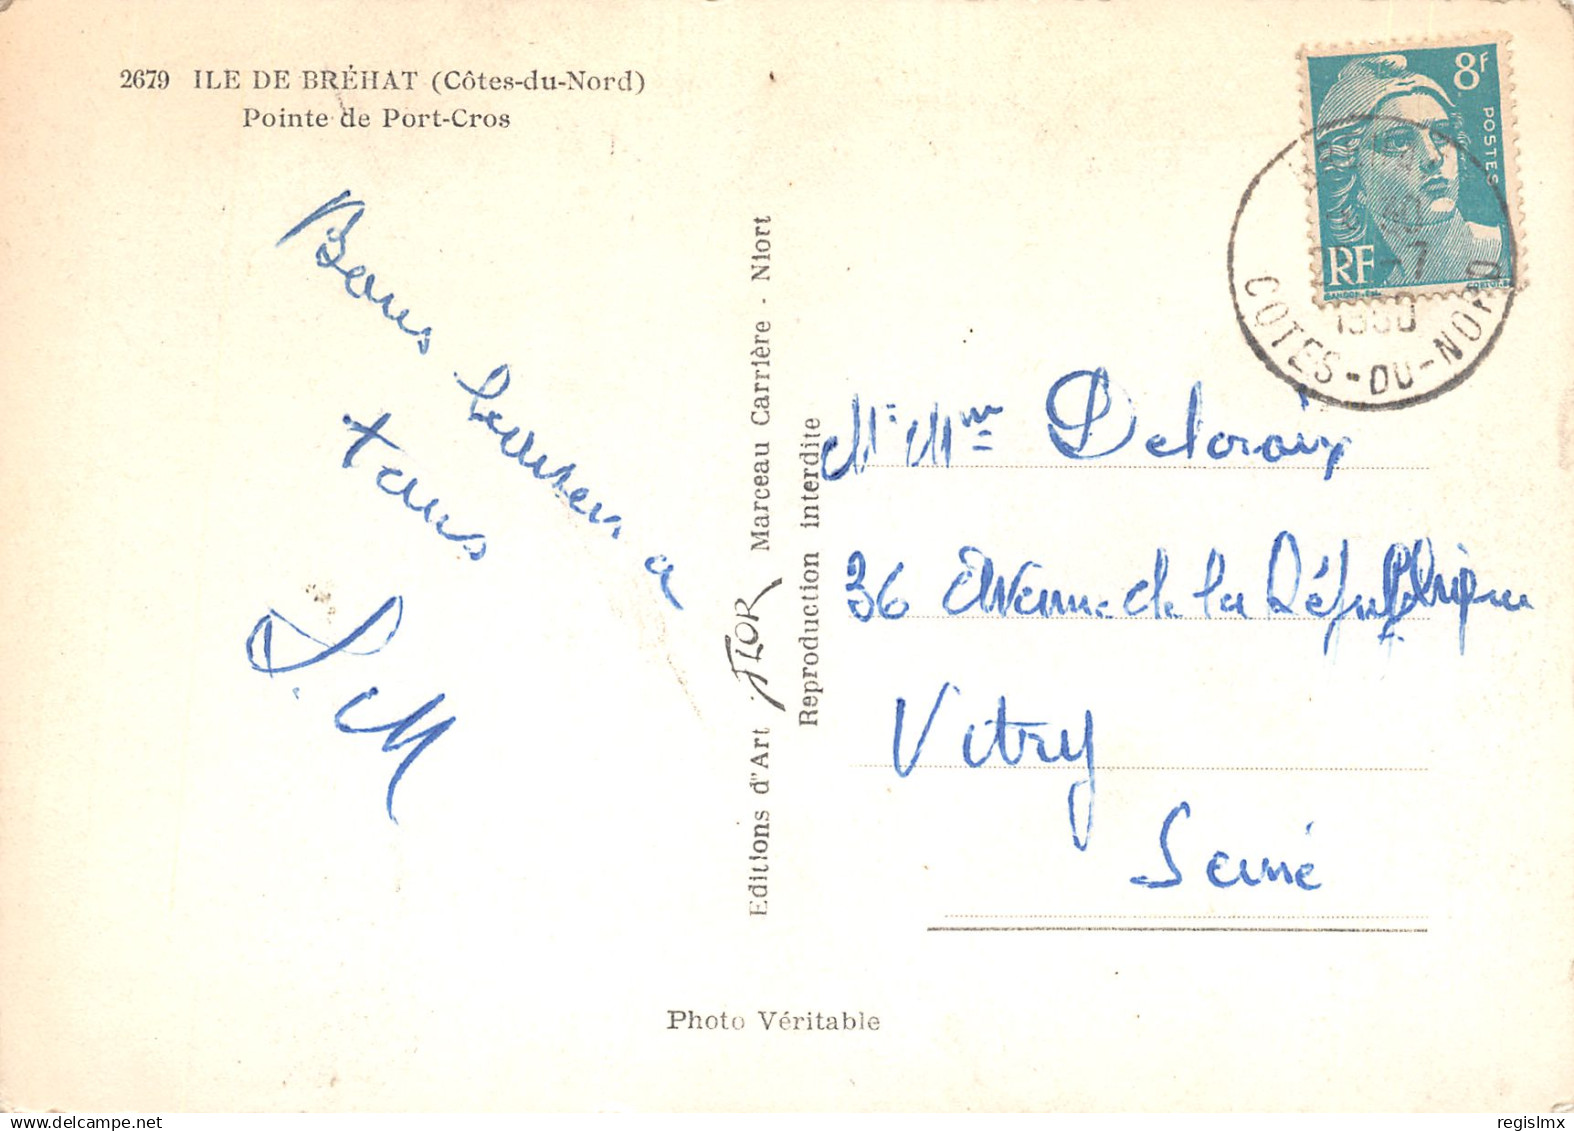 2679 ILE DE BRÉHAT (Côtes-du-Nord)
Pointe de Port-Cros
Bons baisers a
tous
Editions d'Art JLOR Marceau Carrière - Niort
Reproduction interdite
8F
POSTES
RF
GANDON-DEL.
-7
1950
COTES-DU-NORD
Mr Mme Delcroix
36 Avenue de la République
Vitry
Seine
Photo Véritable
regislmx